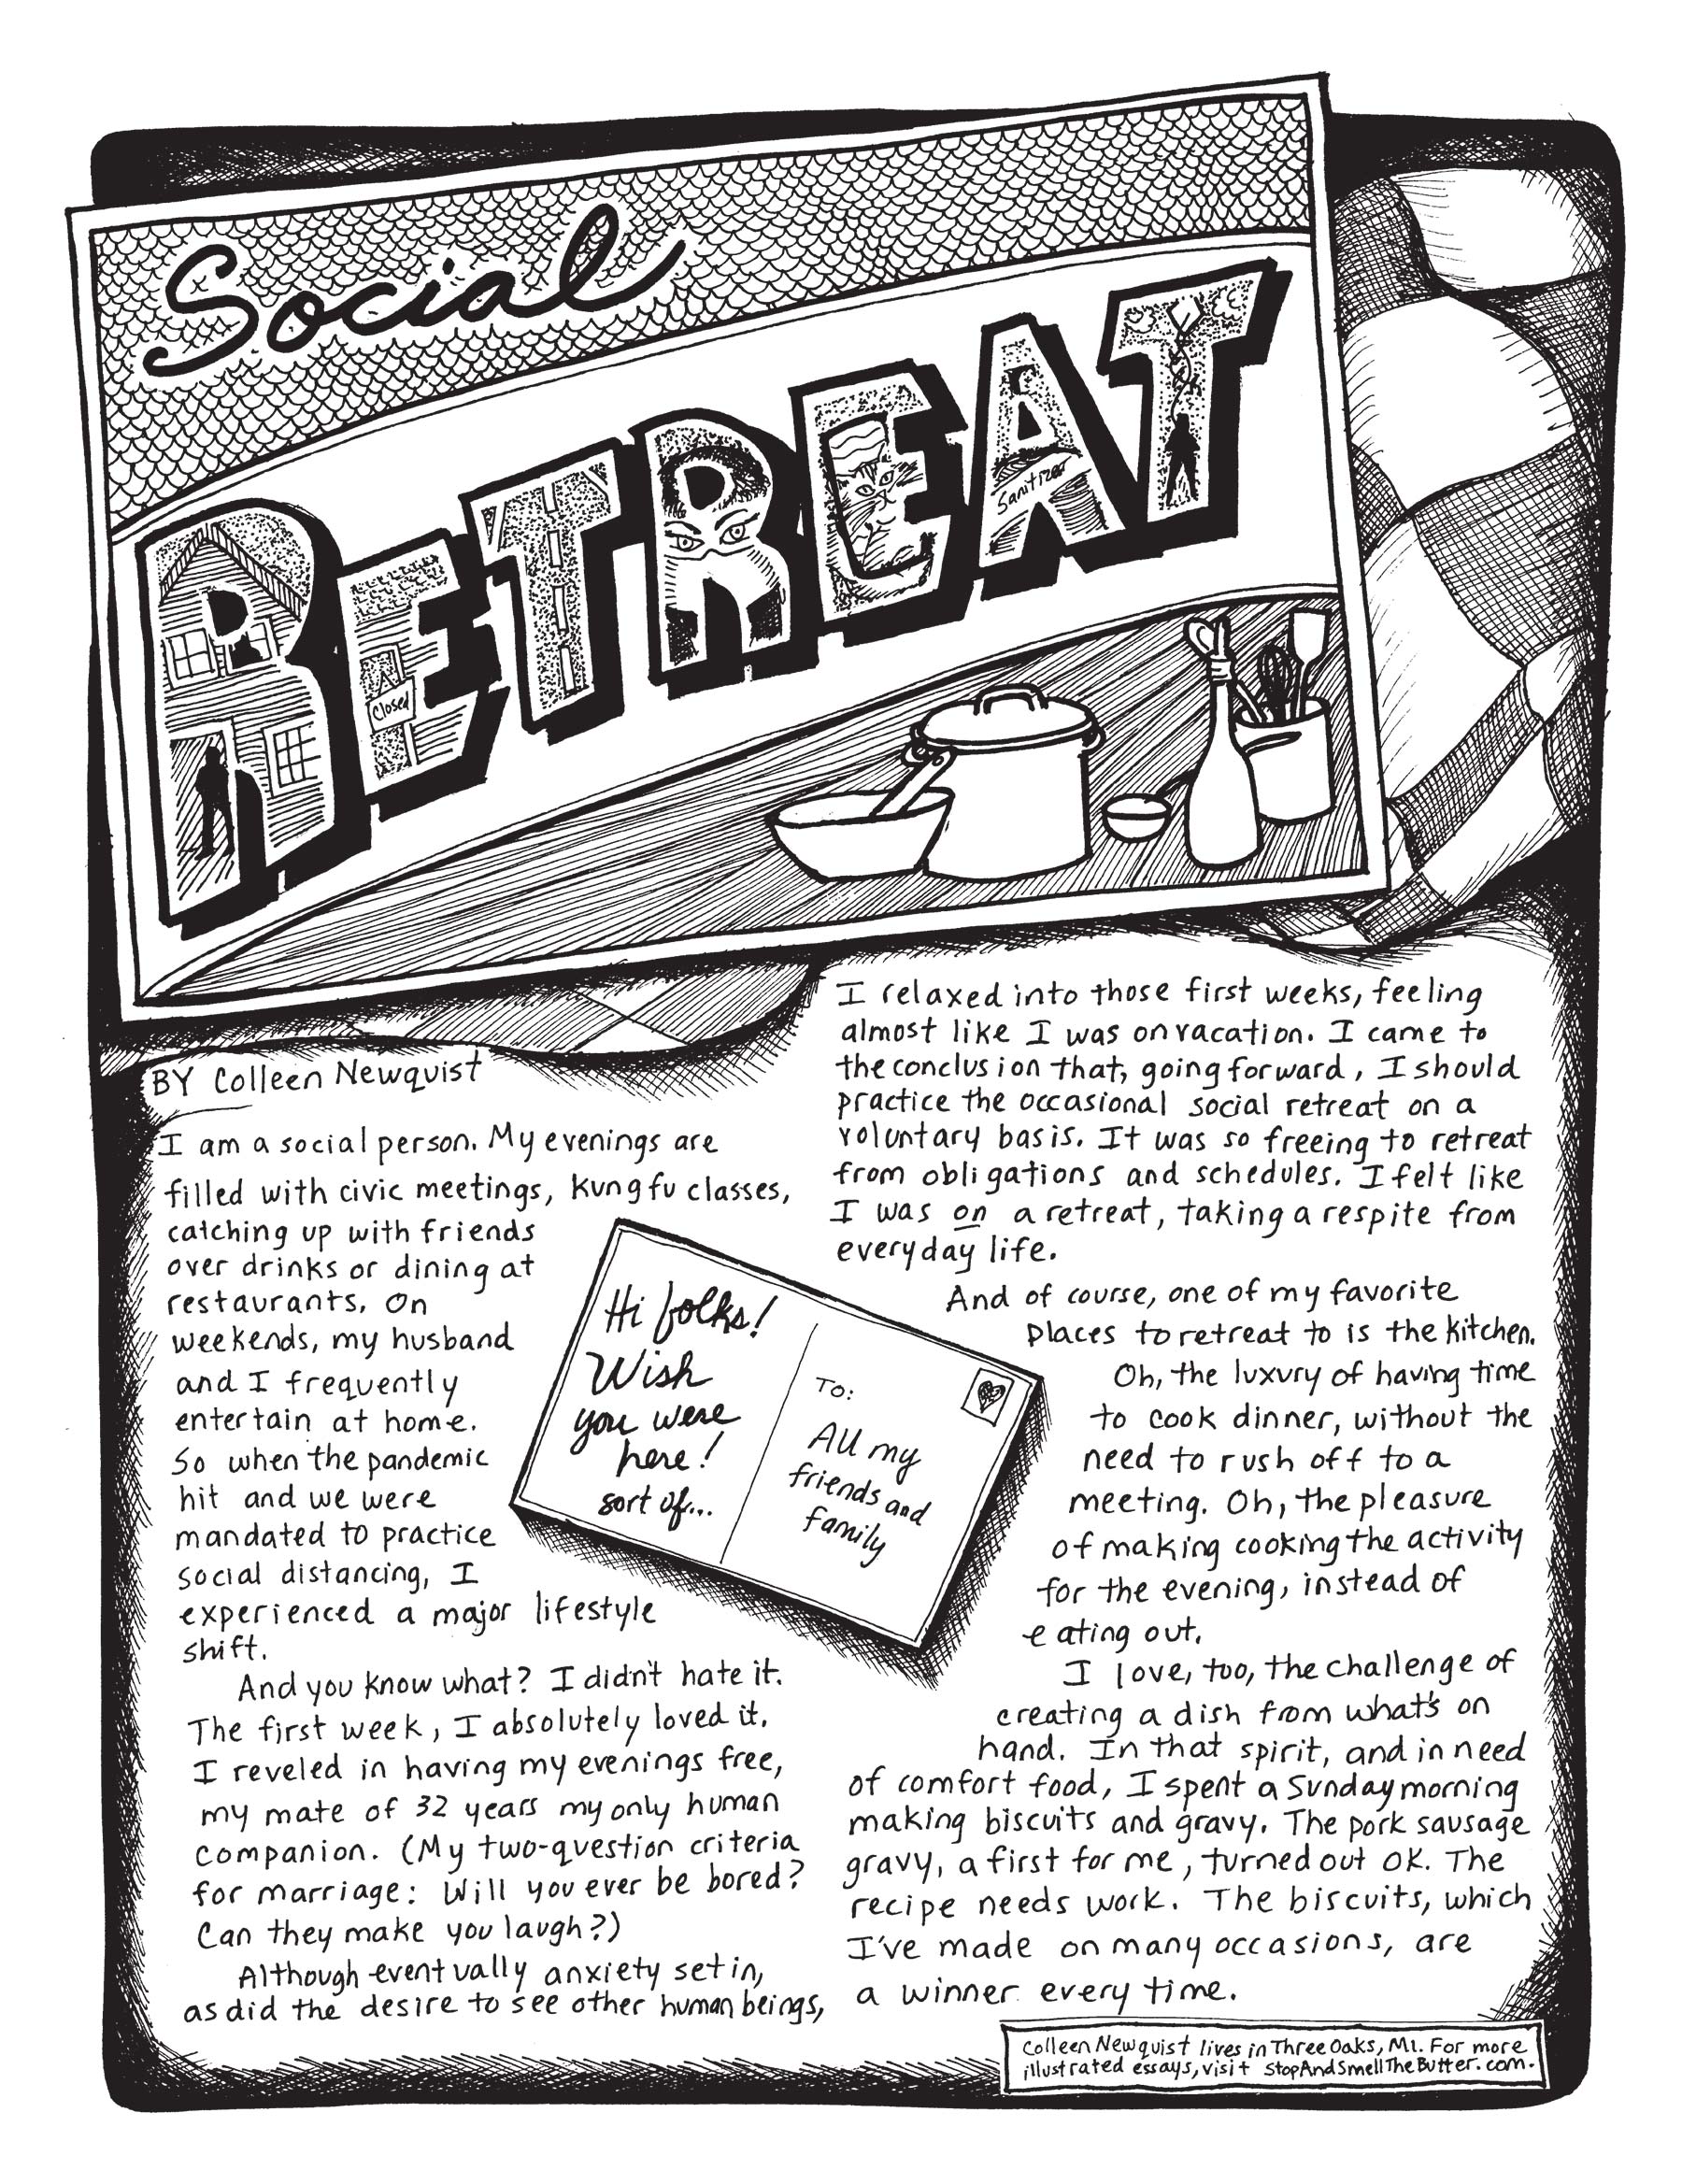 Social
RETREAT
Closed
Sanitizer
BY Colleen Newquist
I am a social person. My evenings are
filled with civic meetings, kung fu classes,
catching up with friends
over drinks or dining at
restaurants. On
weekends, my husband
and I frequently
entertain at home.
So when the pandemic
hit and we were
mandated to practice
social distancing, I
experienced a major lifestyle
shift.
And you know what? I didn't hate it.
The first week, I absolutely loved it.
I reveled in having my evenings free,
my mate of 32 years my only human
companion. (My two-question criteria
for marriage: Will you ever be bored?
Can they make you laugh?)
Although eventually anxiety set in,
as did the desire to see other human beings,
Hi folks!
Wish
you were
here!
sort of...
To:
All my
friends and
family
I relaxed into those first weeks, feeling
almost like I was on vacation. I came to
the conclusion that, going forward, I should
practice the occasional social retreat on a
voluntary basis. It was so freeing to retreat
from obligations and schedules. I felt like
I was on a retreat, taking a respite from
everyday life.
And of course, one of my favorite
places to retreat to is the kitchen.
Oh, the luxury of having time
to cook dinner, without the
need to rush off to a
meeting. Oh, the pleasure
of making cooking the activity
for the evening, instead of
eating out.
I love, too, the challenge of
creating a dish from what's on
hand. In that spirit, and in need
of comfort food, I spent a Sunday morning
making biscuits and gravy. The pork sausage
gravy, a first for me, turned out OK. The
recipe needs work. The biscuits, which
I've made on many occasions, are
a winner every time.
Colleen Newquist lives in Three Oaks, MI. For more
illustrated essays, visit StopAndSmellTheButter.com.